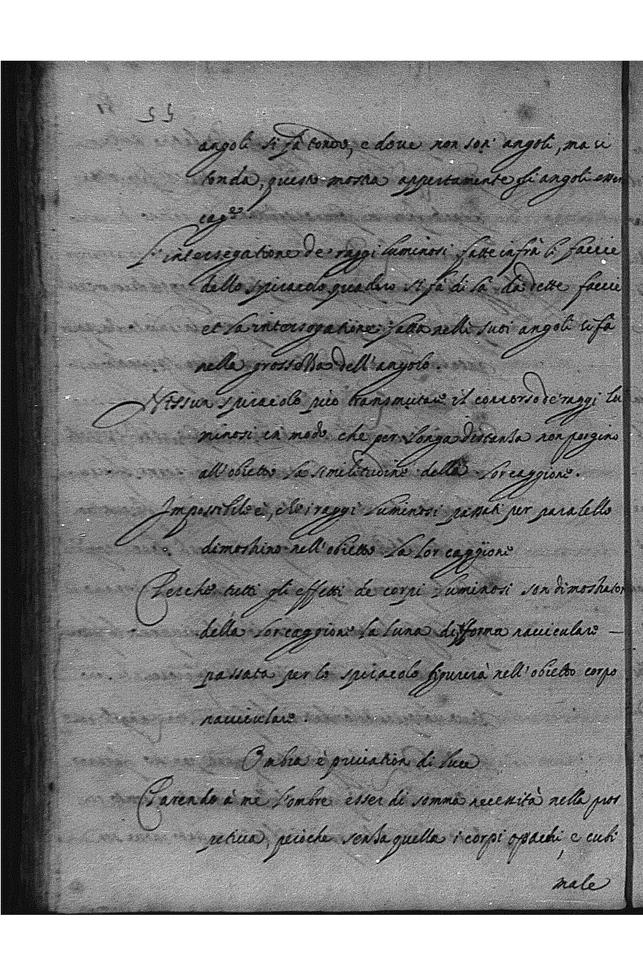 55
angoli si fà tondo, e dove non son' angoli, ma ci
tonda, questo mostra appertamente gli angoli esser
cag.e
L'intersegatione de raggi luminosi fatte infrà li faccie
dello spiracolo quadro si fà di là da dette faccie
et la intersegatione fatta nelli suoi angoli si fà
nella grossezza dell'angolo.
Nissun spiracolo può transmutare il concorso de raggi lu
minosi in modo che per longa distanza non porgino
all'obietto la similitudine della lor caggione.
Impossibile è, che i raggi luminosi passati per paralello
dimostrino nell'obietto la lor caggione
Perche tutti gli effetti de corpi luminosi son dimostratori
della lor caggione la luna di forma navviculare
passata per lo spiracolo figurerà nell'obietto corpo
navviculare.
Ombra è privation di luce
Parendo à me l'ombre esser di somma necessità nella pros
petiva, perioche senza quella i corpi opachi, e cubi
male